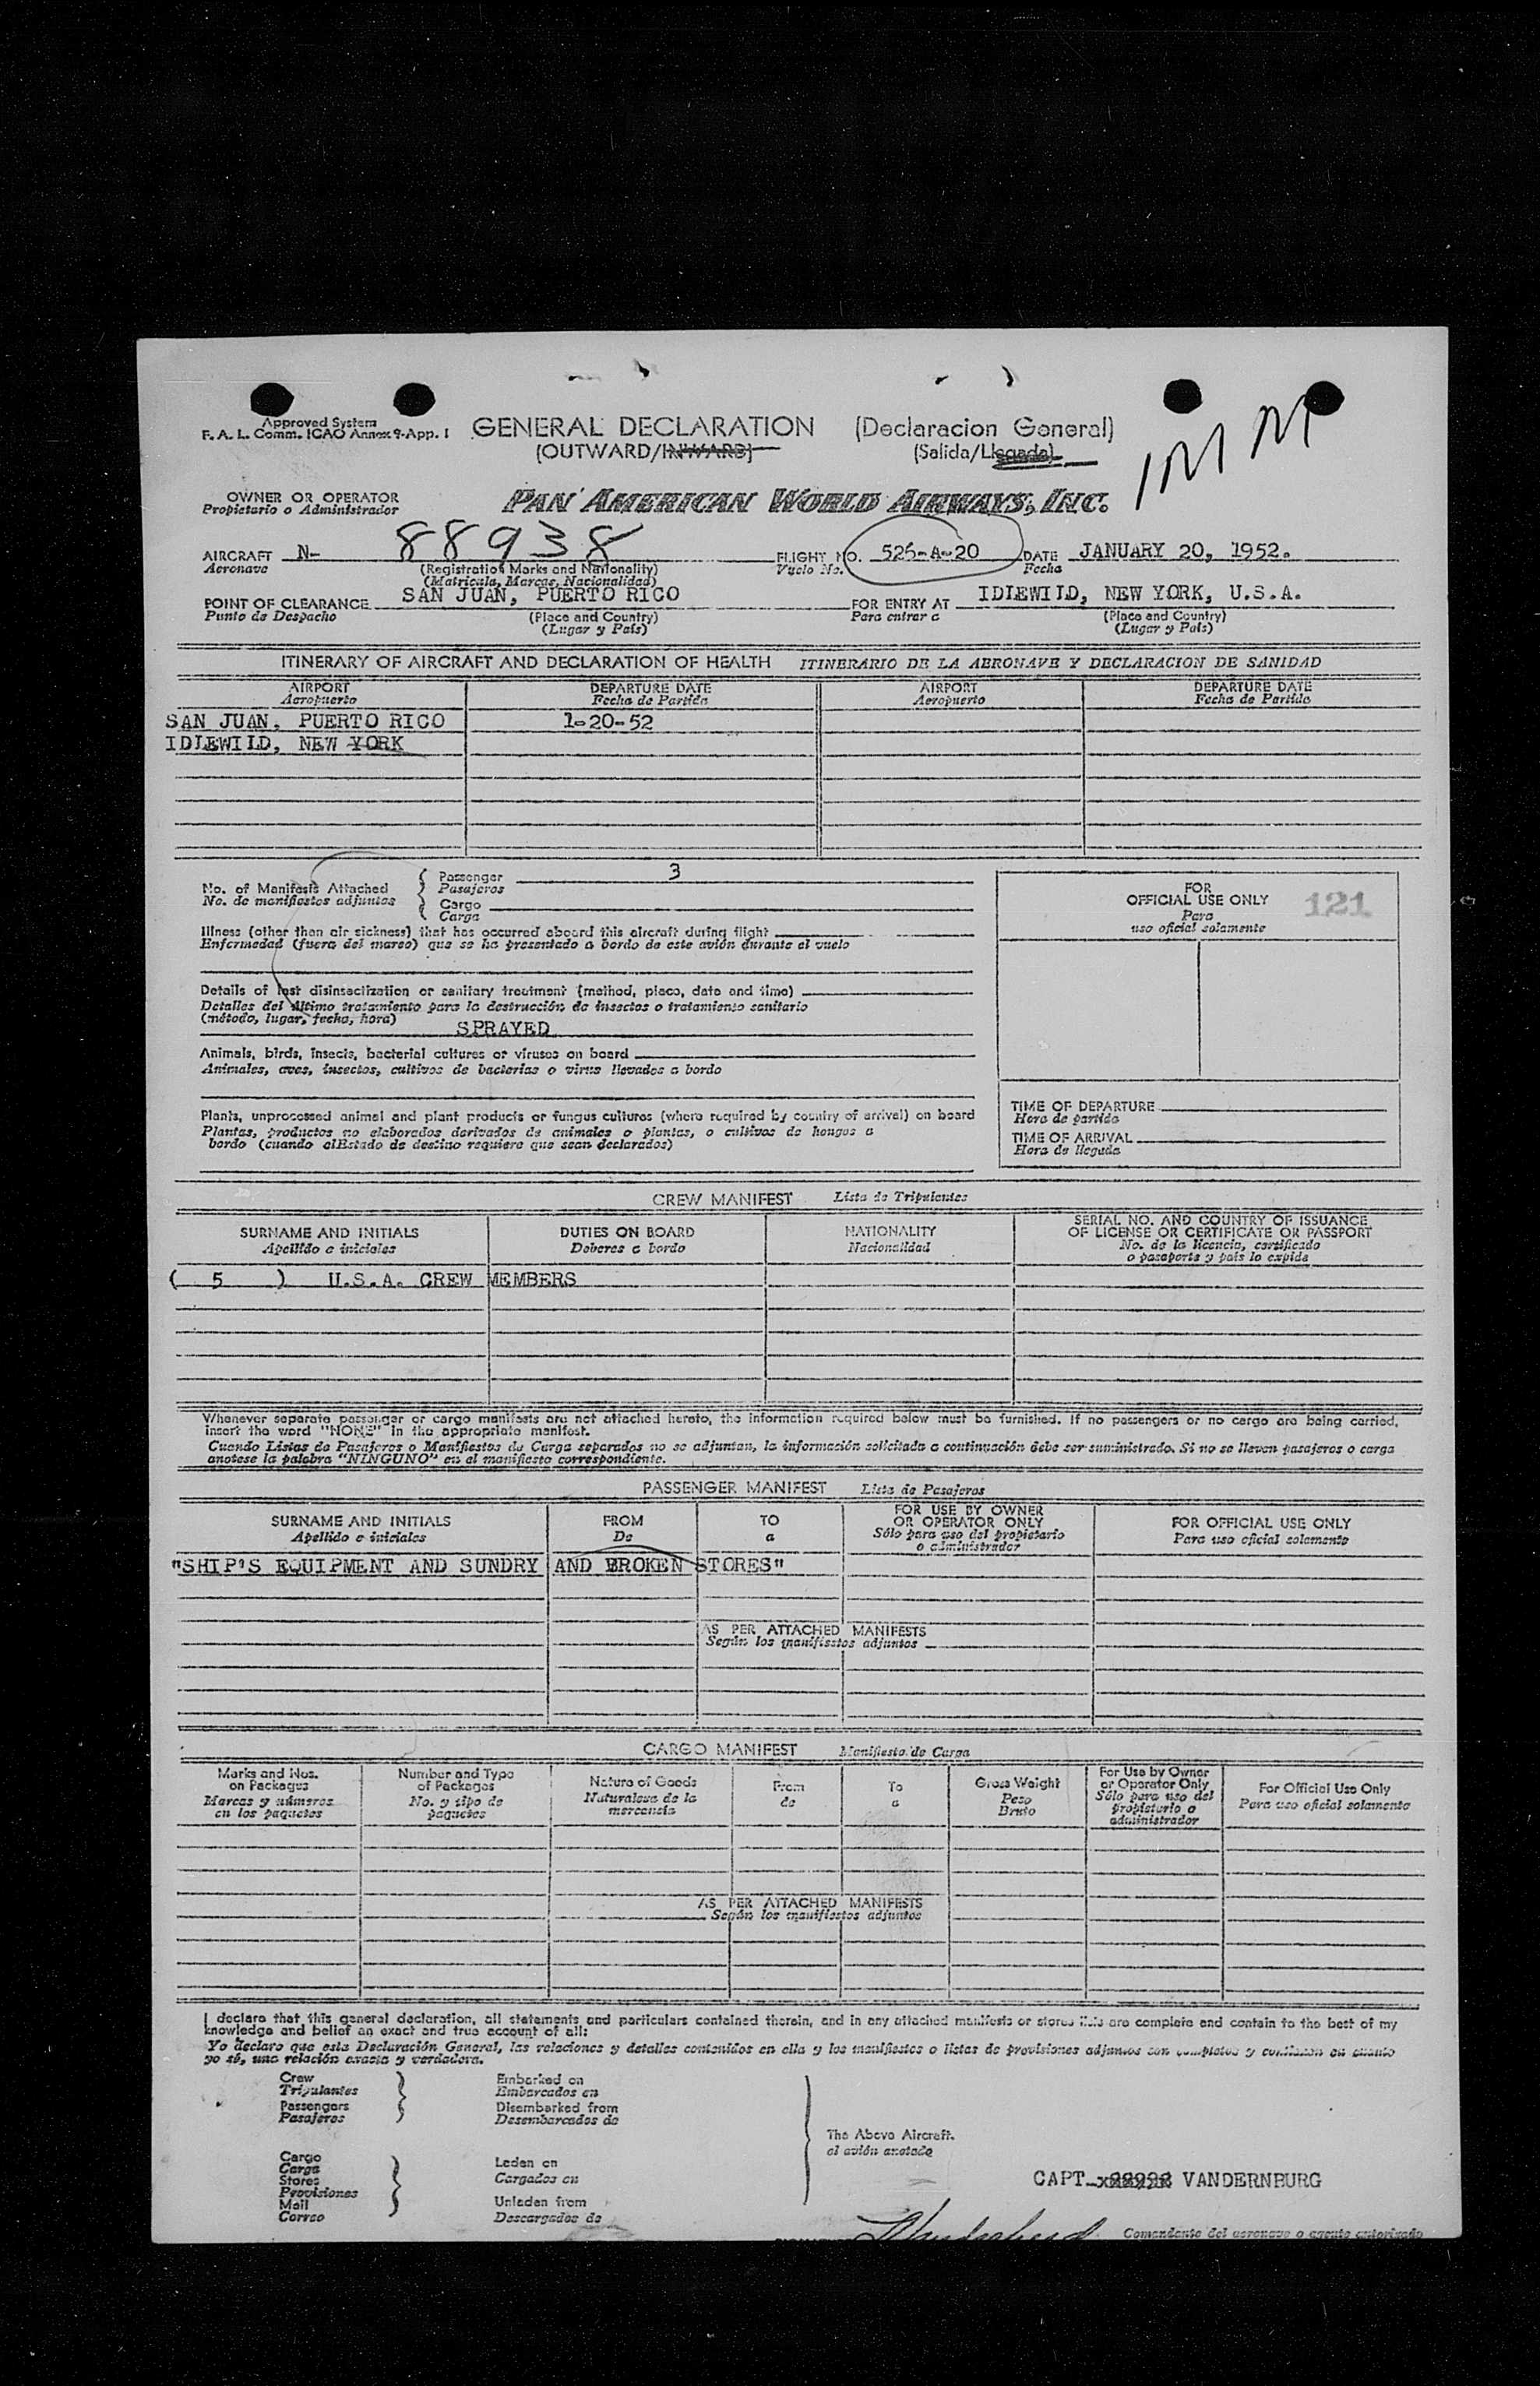 Approved System
F. A. L. Comm. ICAO Annex 9-App. I
GENERAL DECLARATION (Declaracion General)
(OUTWARD/INWARD) (Salida/Llegada)
OWNER OR OPERATOR
Propietario o Administrador
PAN AMERICAN WORLD AIRWAYS, INC.
AIRCRAFT N- 88938 FLIGHT NO. 526-A-20 DATE JANUARY 20, 1952.
Aeronave (Registration Marks and Nationality) Vuelo No. Fecha
(Matricula, Marcas, Nacionalidad)
POINT OF CLEARANCE SAN JUAN, PUERTO RICO FOR ENTRY AT IDLEWILD, NEW YORK, U.S.A.
Punto de Despacho (Place and Country) Para entrar a (Place and Country)
(Lugar y País) (Lugar y País)
ITINERARY OF AIRCRAFT AND DECLARATION OF HEALTH ITINERARIO DE LA AERONAVE Y DECLARACION DE SANIDAD
AIRPORT DEPARTURE DATE AIRPORT DEPARTURE DATE
Aeropuerto Fecha de Partida Aeropuerto Fecha de Partida
SAN JUAN, PUERTO RICO 1-20-52
IDLEWILD, NEW YORK
No. of Manifests Attached
No. de manifiestos adjuntos
Passenger 3
Pasajeros
Cargo
Carga
FOR
OFFICIAL USE ONLY 121
Para
uso oficial solamente
Illness (other than air sickness) that has occurred aboard this aircraft during flight
Enfermedad (fuera del mareo) que se ha presentado a bordo de este avión durante el vuelo
Details of last disinsectization or sanitary treatment (method, place, date and time)
Detalles del último tratamiento para la destrucción de insectos o tratamiento sanitario
(método, lugar, fecha, hora)
SPRAYED
Animals, birds, insects, bacterial cultures or viruses on board
Animales, aves, insectos, cultivos de bacterias o virus llevados a bordo
Plants, unprocessed animal and plant products or fungus cultures (where required by country of arrival) on board
Plantas, productos no elaborados derivados de animales o plantas, o cultivos de hongos a
bordo (cuando elEstado de destino requiere que sean declarados)
TIME OF DEPARTURE
Hora de partida
TIME OF ARRIVAL
Hora de llegada
CREW MANIFEST Lista de Tripulantes
SURNAME AND INITIALS DUTIES ON BOARD NATIONALITY SERIAL NO. AND COUNTRY OF ISSUANCE
OF LICENSE OR CERTIFICATE OR PASSPORT
Apellido e iniciales Deberes a bordo Nacionalidad No. de la licencia, certificado
o pasaporte y país lo expide
( 5 ) U.S.A. CREW MEMBERS
Whenever separate passenger or cargo manifests are not attached hereto, the information required below must be furnished. If no passengers or no cargo are being carried,
insert the word "NONE" in the appropriate manifest.
Cuando Listas de Pasajeros o Manifiestos de Carga separados no se adjuntan, la información solicitada a continuación debe ser suministrado. Si no se llevan pasajeros o carga
anotese la palabra "NINGUNO" en el manifiesto correspondiente.
PASSENGER MANIFEST Lista de Pasajeros
SURNAME AND INITIALS FROM TO FOR USE BY OWNER
OR OPERATOR ONLY FOR OFFICIAL USE ONLY
Apellido e iniciales De a Sólo para uso del propietario
o administrador Para uso oficial solamente
"SHIP'S EQUIPMENT AND SUNDRY AND BROKEN STORES"
AS PER ATTACHED MANIFESTS
Según los manifiestos adjuntos
CARGO MANIFEST Manifiesto de Carga
Marks and Nos.
on Packages
Marcas y números
en los paquetes
Number and Type
of Packages
No. y tipo de
paquetes
Nature of Goods
Naturaleza de la
mercancía
From
de
To
a
Gross Weight
Peso
Bruto
For Use by Owner
or Operator Only
Sólo para uso del
propietario o
administrador
For Official Use Only
Para uso oficial solamente
AS PER ATTACHED MANIFESTS
Según los manifiestos adjuntos
I declare that this general declaration, all statements and particulars contained therein, and in any attached manifests or stores lists are complete and contain to the best of my
knowledge and belief an exact and true account of all:
Yo declaro que esta Declaración General, las relaciones y detalles contenidos en ella y los manifiestos o listas de provisiones adjuntos son completos y contienen en cuanto
yo sé, una relación exacta y verdadera.
Crew
Tripulantes
Passengers
Pasajeros
Embarked on
Embarcados en
Disembarked from
Desembarcados de
The Above Aircraft.
el avión anotado
Cargo
Carga
Stores
Provisiones
Mail
Correo
Laden on
Cargados en
Unladen from
Descargados de
CAPT. VANDERNBURG
Comandante del aeronave o agente autorizado